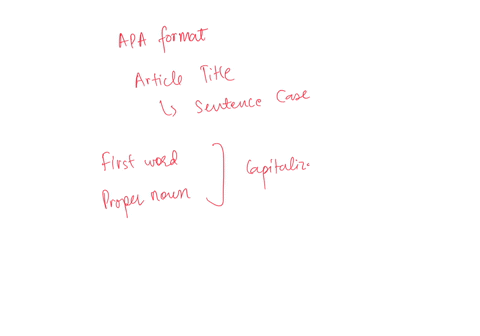 APA format
Article Title
↳ Sentence Case
First word
Proper noun
Capitaliz